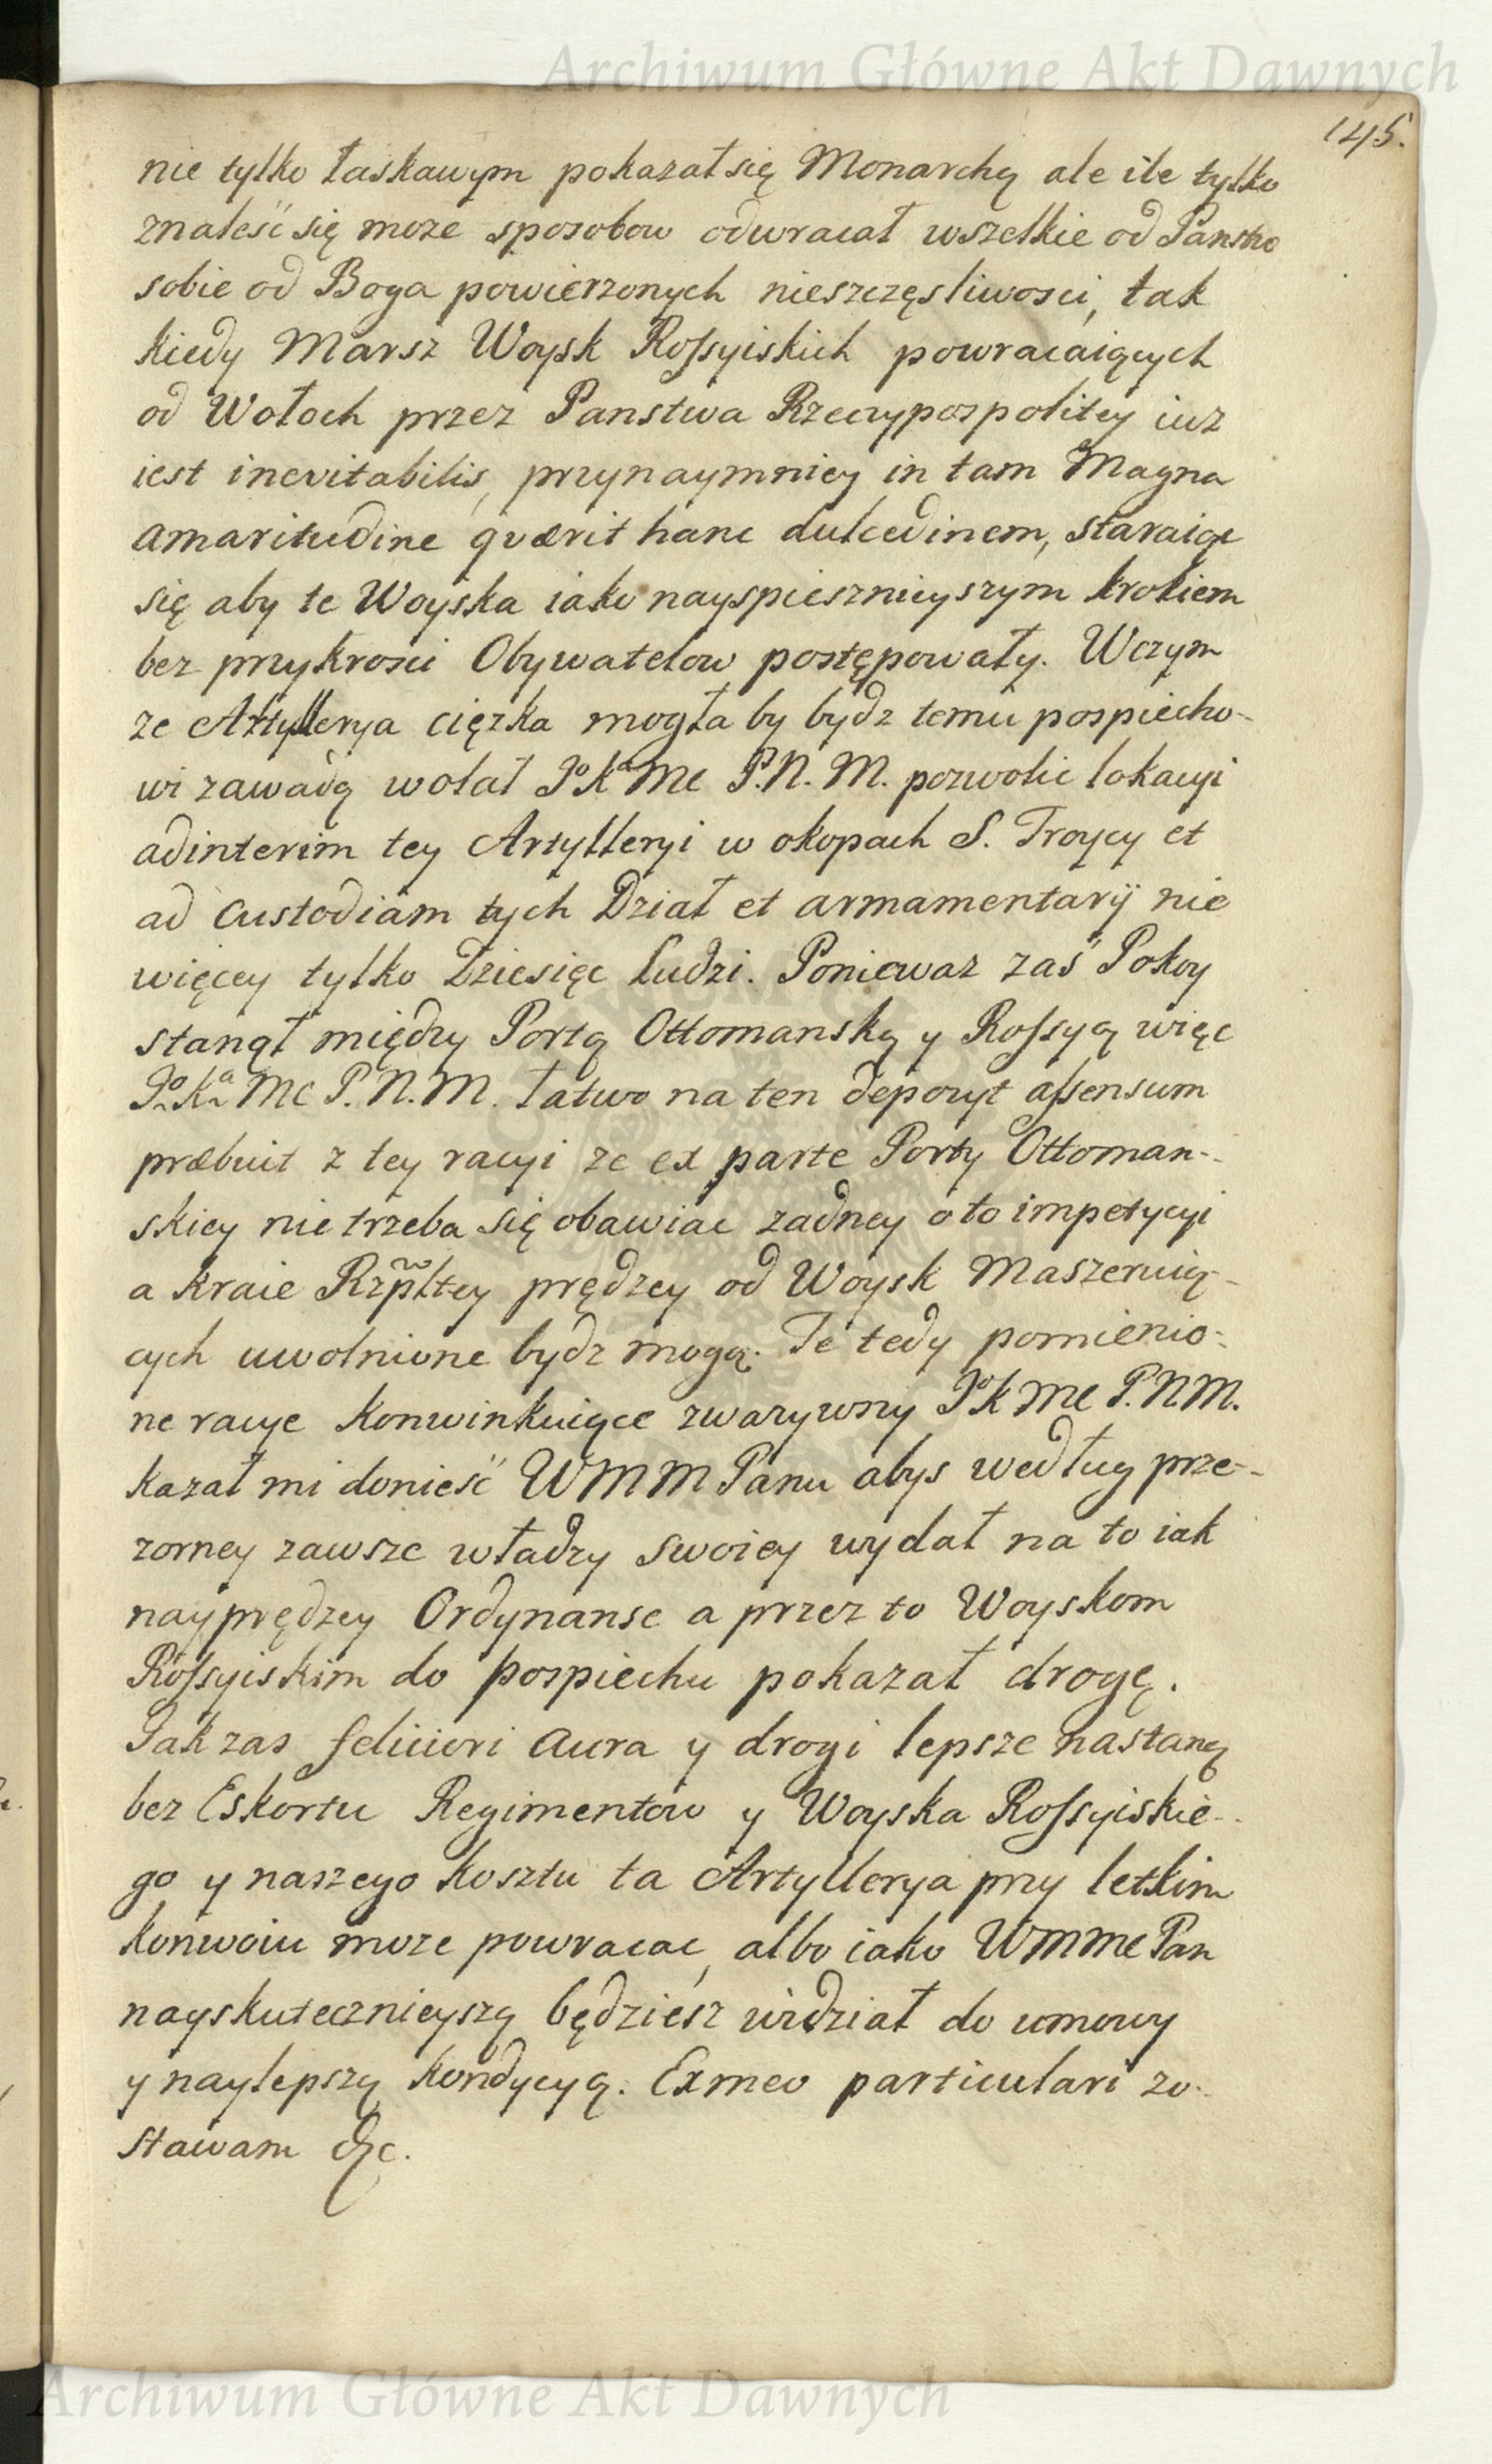 Archiwum Główne Akt Dawnych
145.
nie tylko łaskawym pokazał się Monarchą ale ile tylko
znaleść się może sposobow odwracał wszelkie od Panstw
sobie od Boga powierzonych nieszczęsliwosci, tak
kiedy Marsz Woysk Rossyiskich powracaiących
od Wołoch przez Panstwa Rzeczypospolitey iuz
iest inevitabilis, przynaymniey in tam Magna
amaritudine qværit hanc dulcedinem, staraiąc
się aby te Woyska iako nayspiesznieyszym krokiem
bez przykrosci Obywatelow postępowały. Wczym
ze Artyllerya cięzka mogła by bydz temu pospiecho-
wi zawadą wolał Jo Ka Mc P.N.M. pozwolic lokacyi
adinterim tey Artylleryi w okopach S. Troycy et
ad custodiam tych Dział et armamentarij nie
więcey tylko Dziesięc ludzi. Poniewaz zaś Pokoy
stanął między Portą Ottomanską y Rossyą więc
Jo Ka Mc P.N.M. łatwo na ten depozyt assensum
præbuit z tey racyi ze ex parte Porty Ottoman-
skiey nie trzeba się obawiac zadney o to impetycyi
a kraie Rzpltey prędzey od Woysk Maszeruią-
cych uwolnione bydz mogą. Te tedy pomienio-
ne racye konwinkuiące zwazywszy Jo K Mc P.N.M.
kazał mi donieść WMM Panu abys według prze-
zorney zawsze władzy swoiey wydał na to iak
nayprędzey Ordynanse a przez to Woyskom
Rossyiskim do pospiechu pokazał drogę.
Jak zas feliciori aura y drogi lepsze nastaną
bez Eskortu Regimentow y Woyska Rossyiskie-
go y naszego kosztu ta Artyllerya przy letkim
konwoiu moze powracac, albo iako WMMc Pan
nayskutecznieyszą będziesz widział do umowy
y naylepszą kondycyą. Ex meo particulari zo-
stawam &c.
Archiwum Główne Akt Dawnych